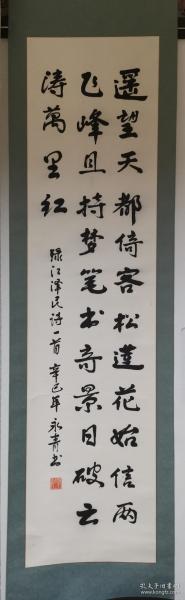 遥望天都倚客松莲花始信两
飞峰且持梦笔书奇景日破云
涛萬里红
录江泽民诗一首 辛巳年 永青书